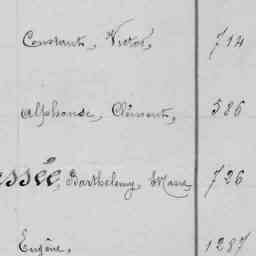 Constant, Victor, 714
Alphonse, Clément, 586
ssée, Barthélemy, Marie 726
Eugène, 1287